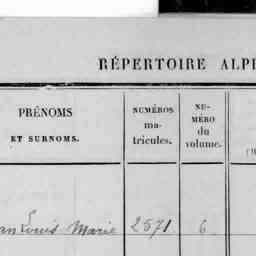 RÉPERTOIRE ALP
PRÉNOMS
ET SURNOMS.
NUMÉROS
ma-
tricules.
NU-
MÉRO
du
volume.
an Louis Marie 2571 6